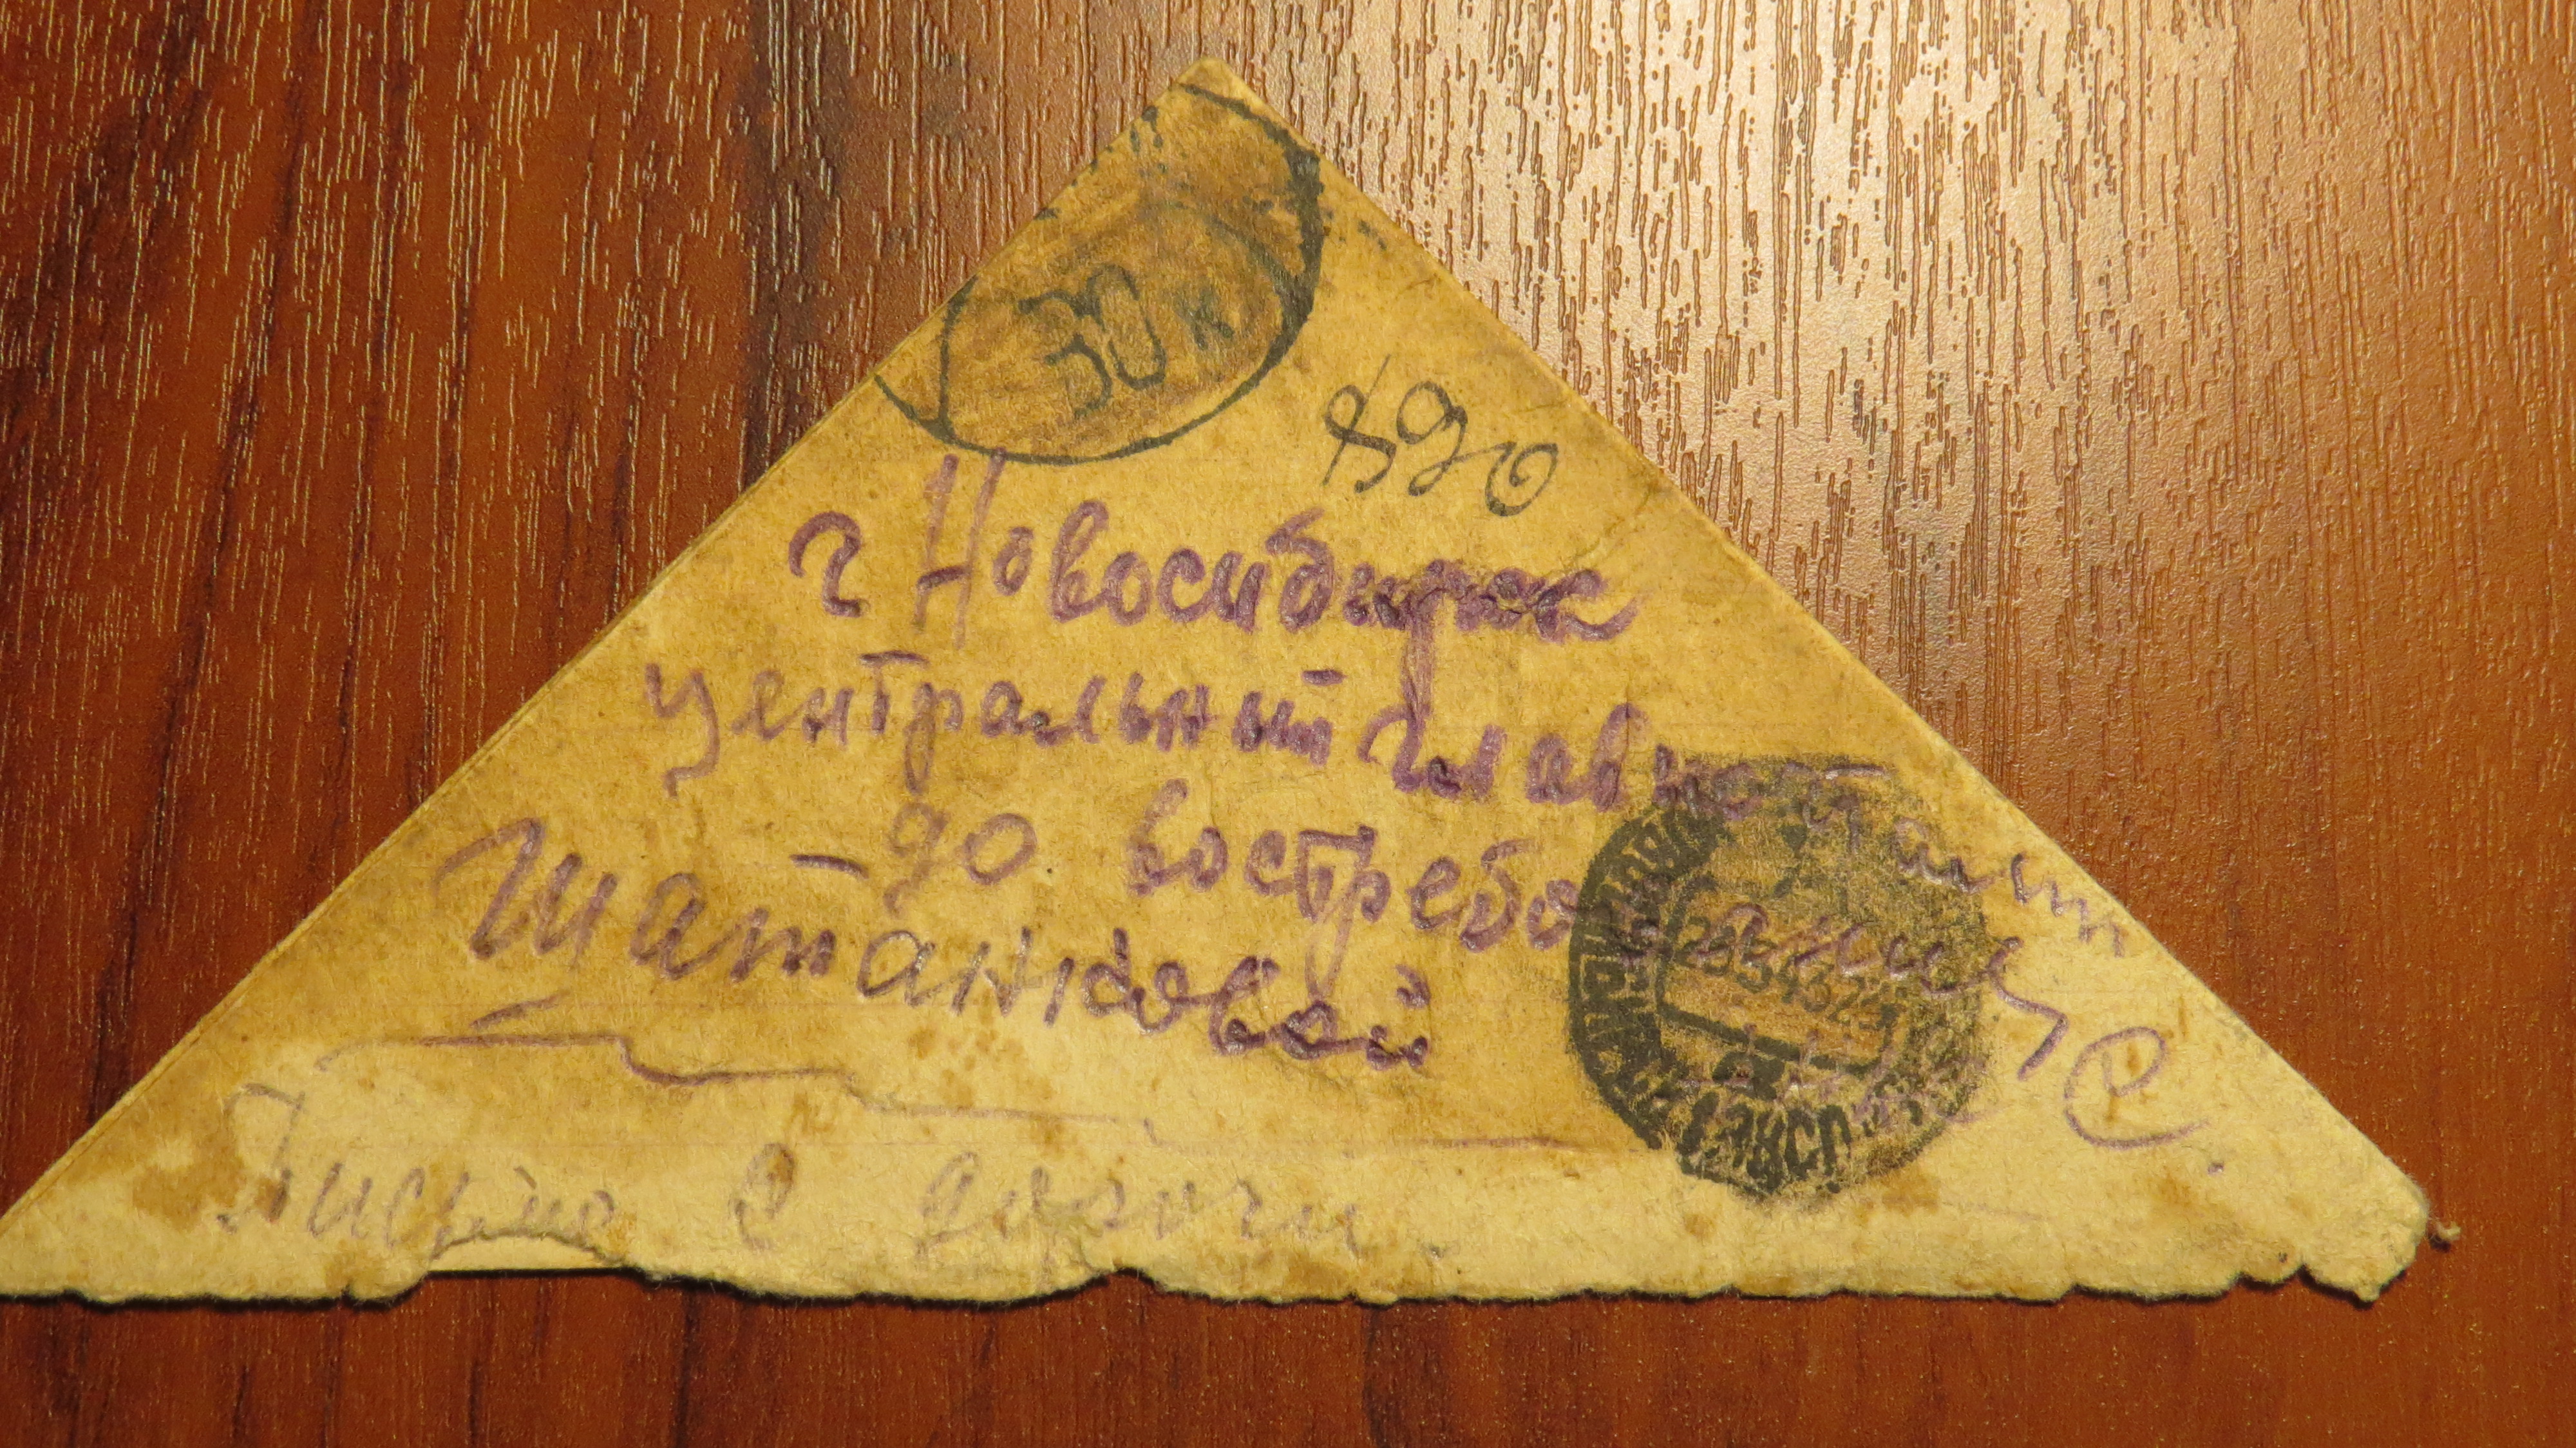 30 к
890
г Новосибирск
центральный главпочтамт
до востребования
Шатанковой
С
Письмо с дороги.